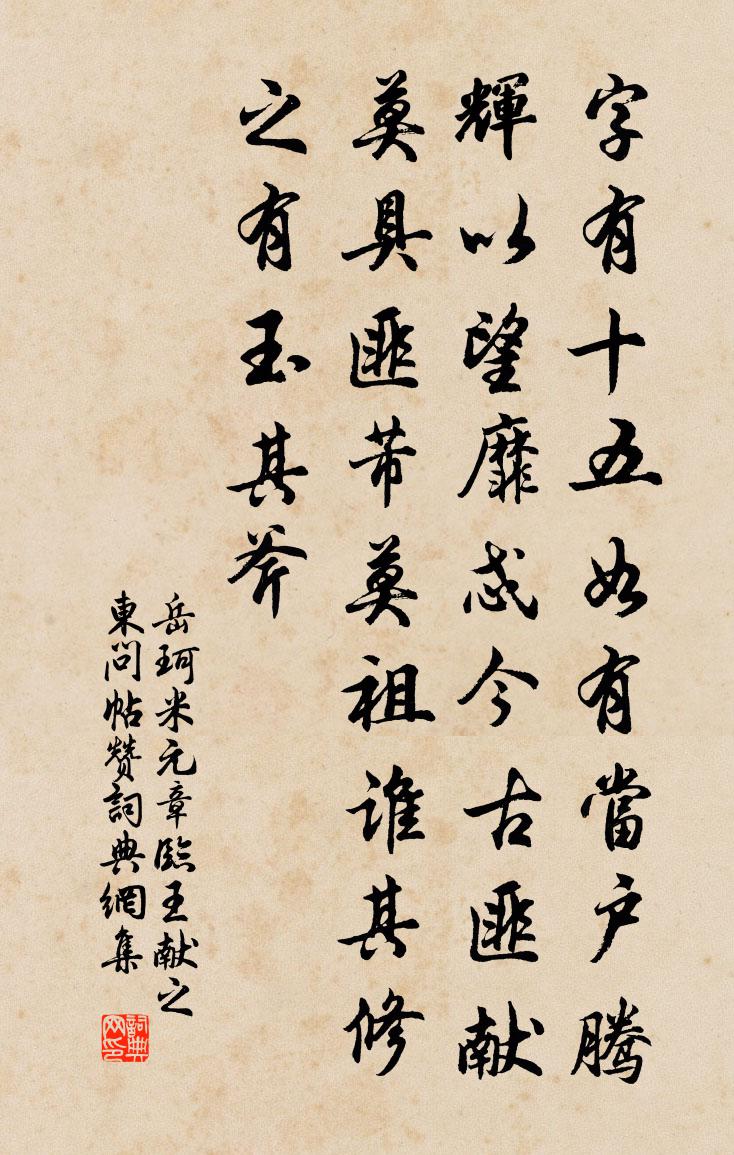 字有十五如有當户騰
輝以望靡忒今古匪獻
莫具匪芾莫祖誰其修
之有玉其斧
岳珂米元章臨王獻之
東問帖贊詞典網集
詞典
网印